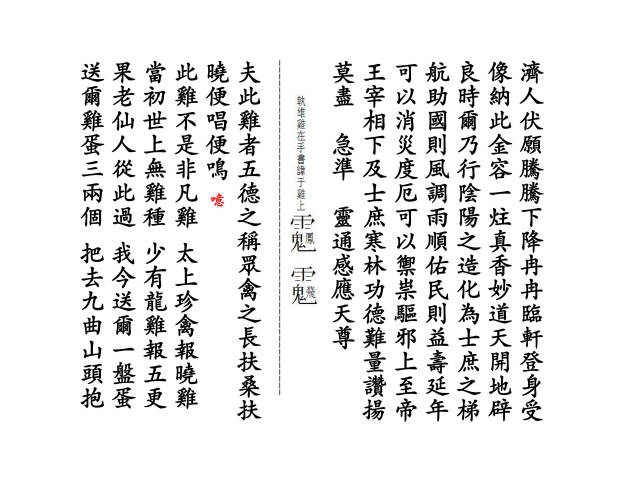 濟人伏願騰騰下降冉冉臨軒登身受
像納此金容一炷真香妙道天開地辟
良時爾乃行陰陽之造化為士庶之梯
航助國則風調雨順佑民則益壽延年
可以消災度厄可以禦祟驅邪上至帝
王宰相下及士庶寒林功德難量讚揚
莫盡 急準 靈通感應天尊
執雄雞在手書諱于雞上
鳳 飛
夫此雞者五德之稱眾禽之長扶桑扶
曉便唱便鳴 噫
此雞不是非凡雞 太上珍禽報曉雞
當初世上無雞種 少有龍雞報五更
果老仙人從此過 我今送爾一盤蛋
送爾雞蛋三兩個 把去九曲山頭抱